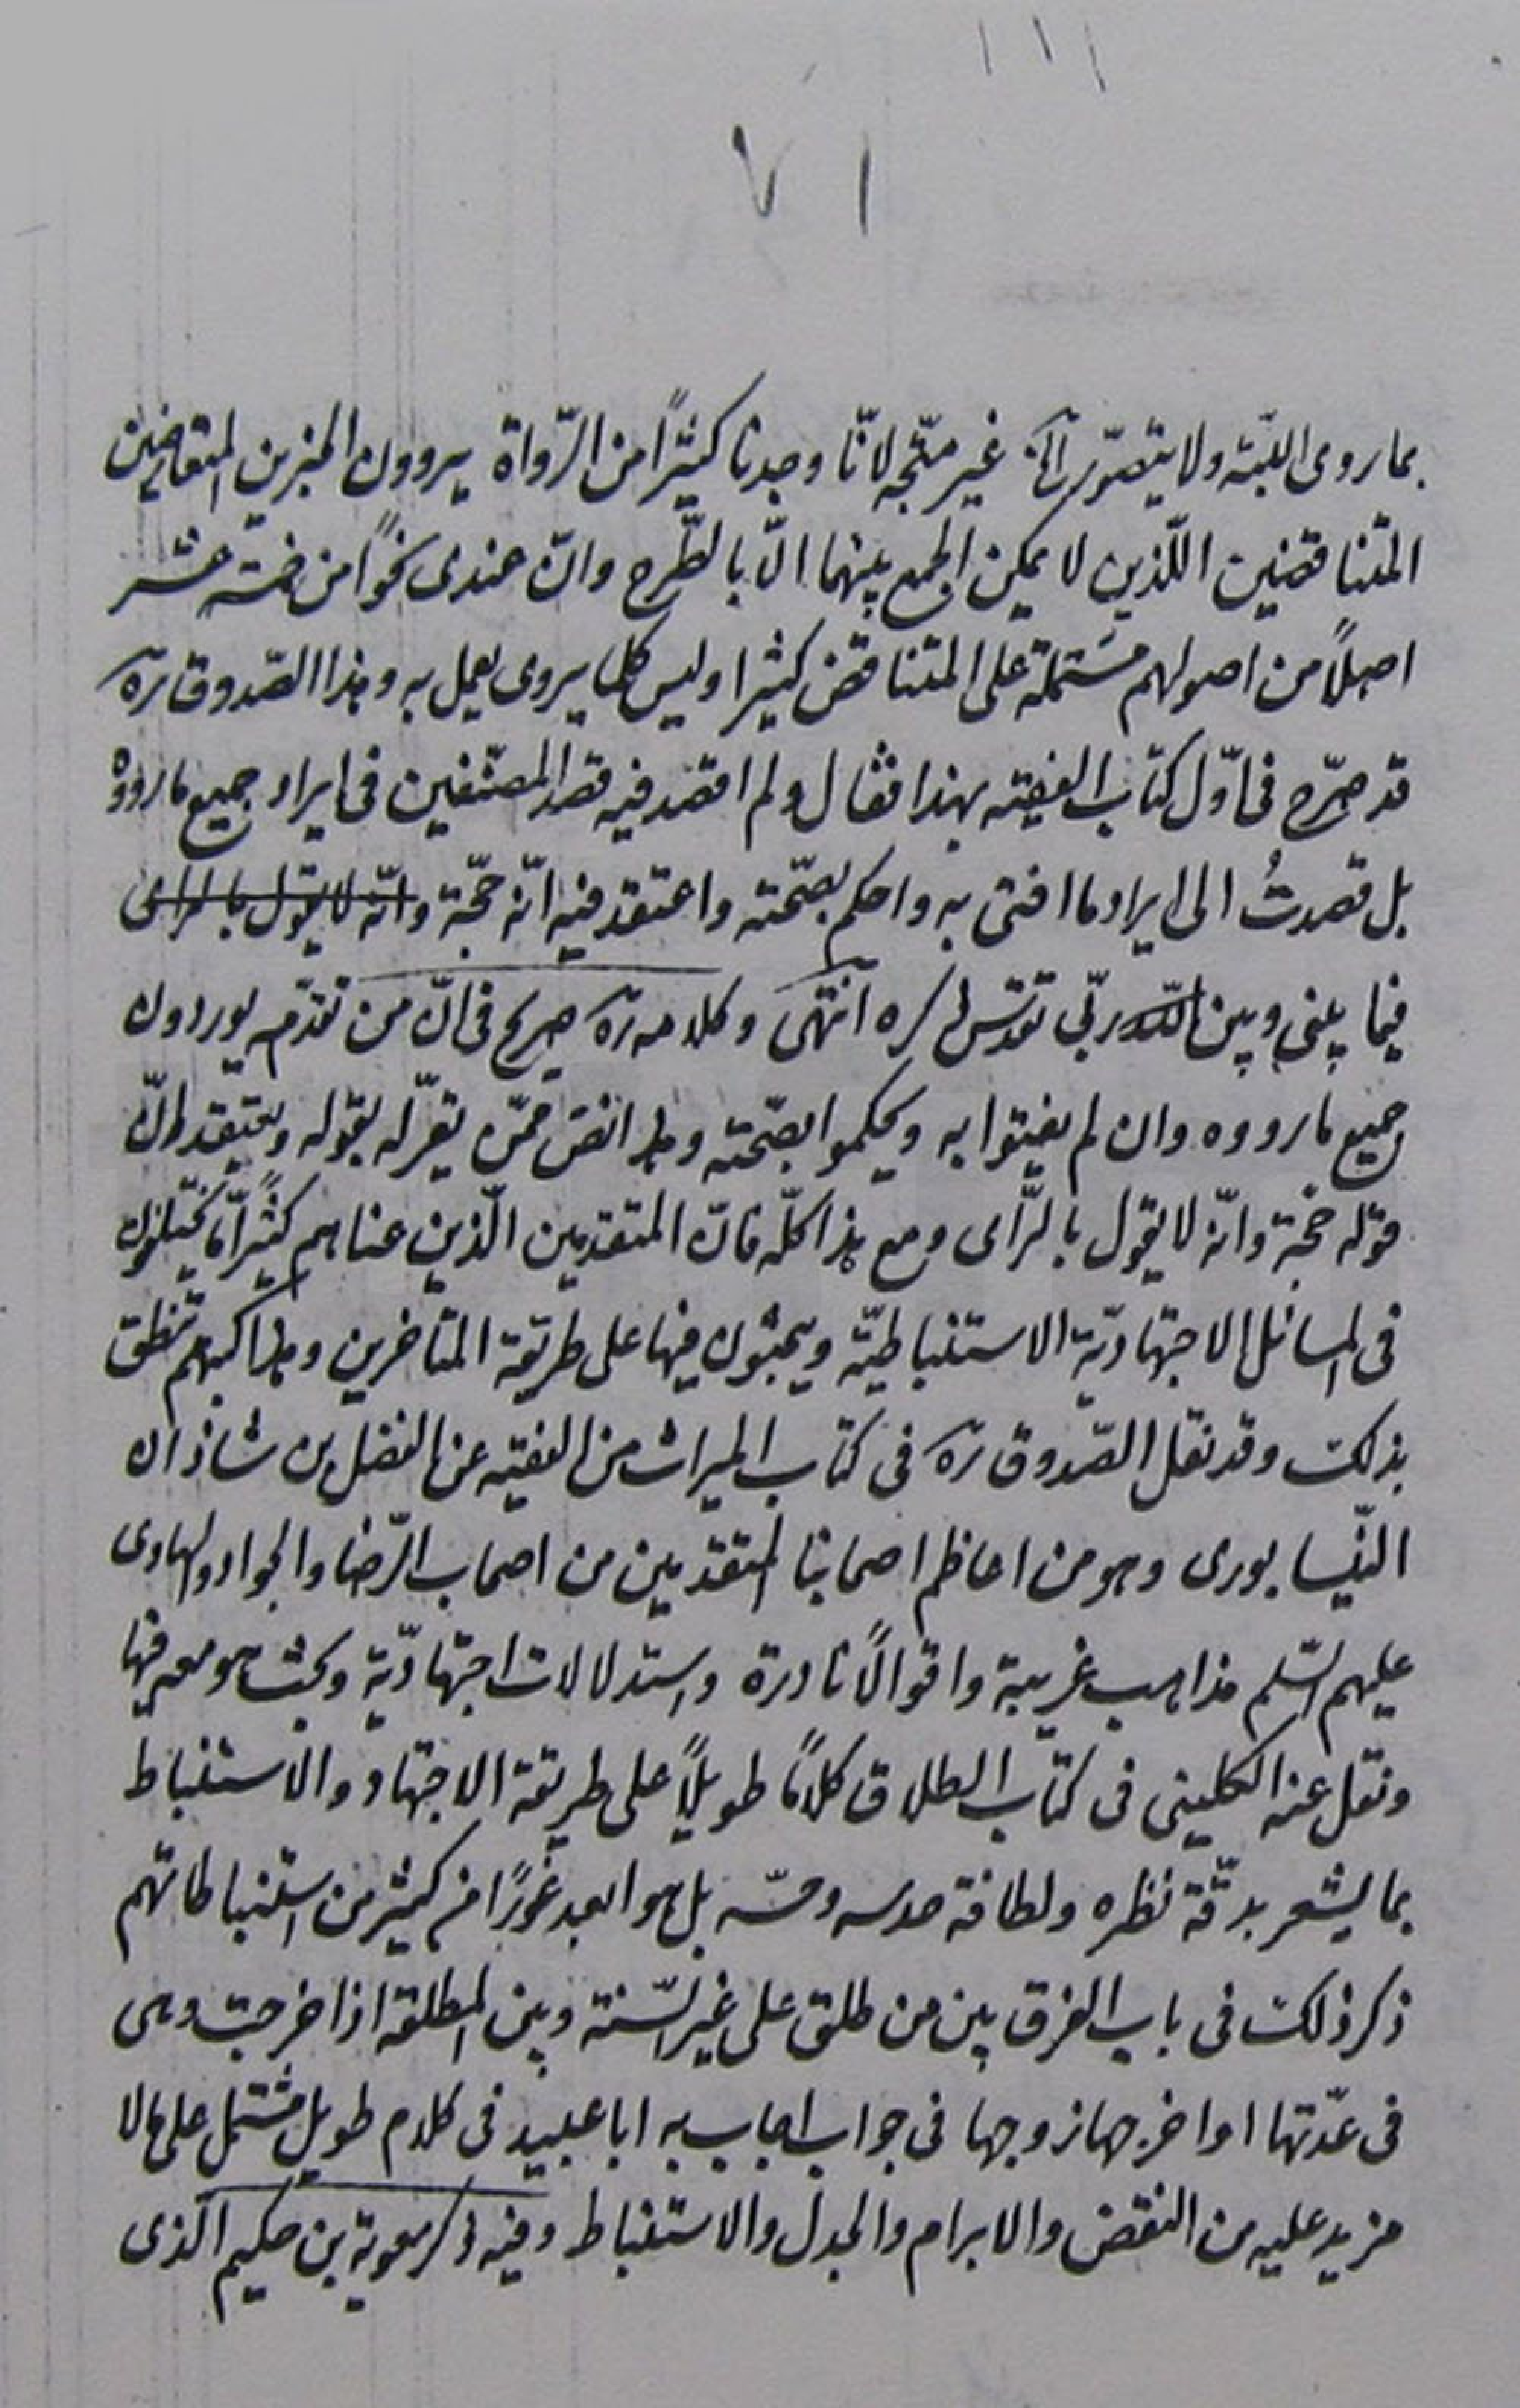 ١٧
بما روى البتّه ولا يتصوّر الخ غير متّجه لانّا وجدنا كثيرًا من الرّواة يروون الخبرين المتعارضين
المتناقضين اللّذين لا يمكن الجمع بينهما الّا بالطّرح وانّ عندى نحوًا من خمسة عشر
اصلاً من اصولهم مشتملة على المتناقض كثيرا وليس كلما يروى يعمل به وهذا الصّدوق ره
قد صرّح فى اوّل كتاب الفقيه بهذا فقال ولم اقصد فيه قصد المصنّفين فى ايراد جميع ما رووْه
بل قصدتُ الى ايراد ما افتى به واحكم بصحّته واعتقد فيه انّه حجّة وانّه لا يقول بالراى
فيما بينى وبين الله ربّى تقدّس ذكره انتهى وكلامه ره صريح فى انّ من تقدّمه يوردون
جميع ما رووه وان لم يفتوا به ويحكموا بصحّته وما انقض ممّن يقرّ له بقوله ويعتقد انّ
قوله حجّة وانّه لا يقول بالرّاى ومع هذا كلّه فانّ المتقدمين الّذين عناهم كثيرًا ما يختلفون
فى المسائل الاجتهاديّة الاستنباطيّة ويبحثون فيها على طريقة المتأخرين وهذا كتبهم تنطق
بذلك وقد نقل الصّدوق ره فى كتاب الميراث من الفقيه عن الفضل بن شاذان
النّيسابورى وهو من اعاظم اصحابنا المتقدمين من اصحاب الرّضا والجواد والهادى
عليهم السّلم مذاهب غريبة واقوالًا نادرة واستدلالات اجتهاديّة وبحث هو معه فيها
ونقل عنه الكلينى فى كتاب الطلاق كلامًا طويلاً على طريقة الاجتهاد والاستنباط
بما يشعر بدقّة نظره ولطافة حدسه وحسّه بل هو ابعد غورًا من كثير من استنباطاتهم
ذكر ذلك فى باب الفرق بين من طلق على غير السّنة وبين المطلقة اذا خرجت وهى
فى عدّتها او اخرجها زوجها فى جواب اجاب به ابا عبيد فى كلام طويل مشتمل على ما لا
مزيد عليه من النقض والابرام والجدل والاستنباط وفيه ذكر معوية بن حكيم الّذى